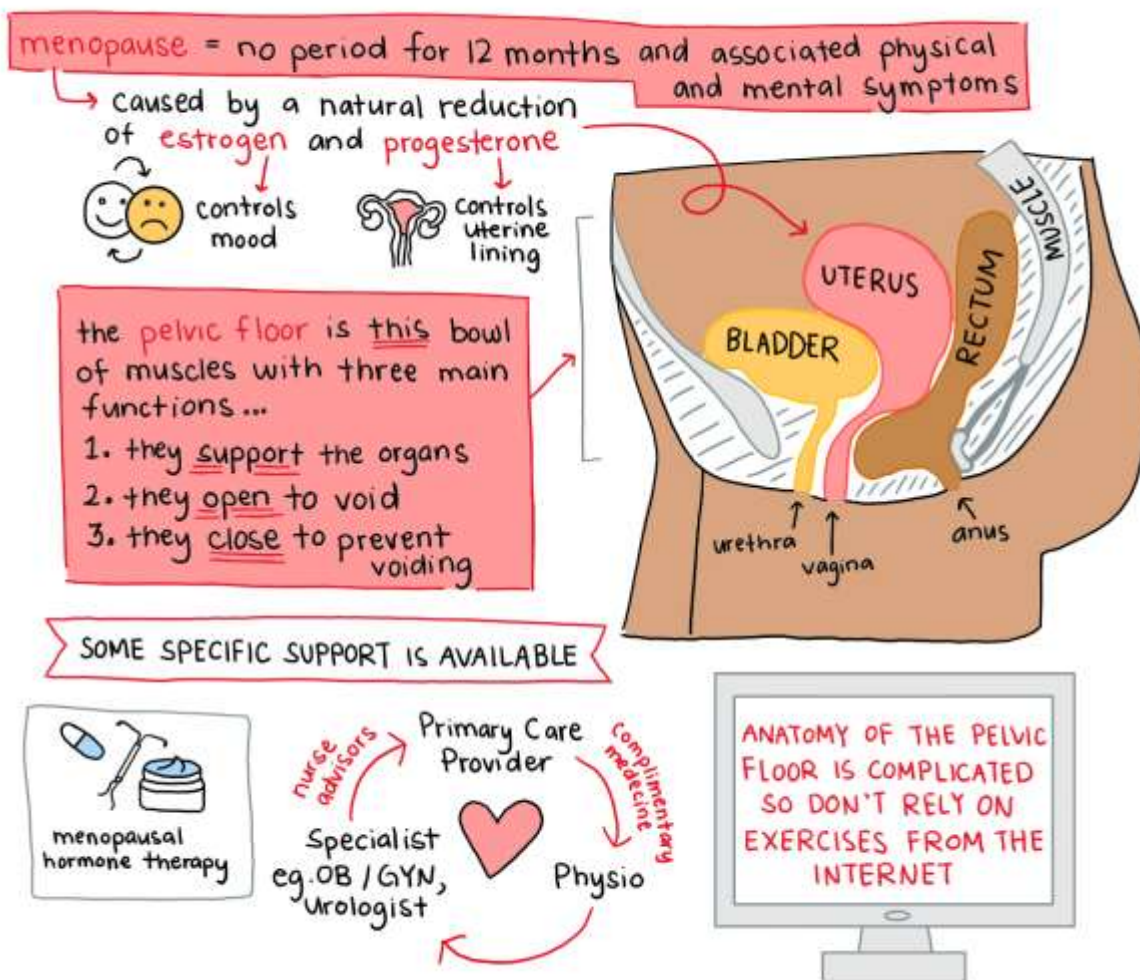 menopause = no period for 12 months and associated physical
and mental symptoms
caused by a natural reduction
of estrogen and progesterone
controls
mood
controls
uterine
lining
the pelvic floor is this bowl
of muscles with three main
functions...
1. they support the organs
2. they open to void
3. they close to prevent
voiding
BLADDER
UTERUS
RECTUM
MUSCLE
urethra
vagina
anus
SOME SPECIFIC SUPPORT IS AVAILABLE
menopausal
hormone therapy
nurse
advisors
Primary Care
Provider
complimentary
medecine
Specialist
eg. OB / GYN,
Urologist
Physio
ANATOMY OF THE PELVIC
FLOOR IS COMPLICATED
SO DON'T RELY ON
EXERCISES FROM THE
INTERNET